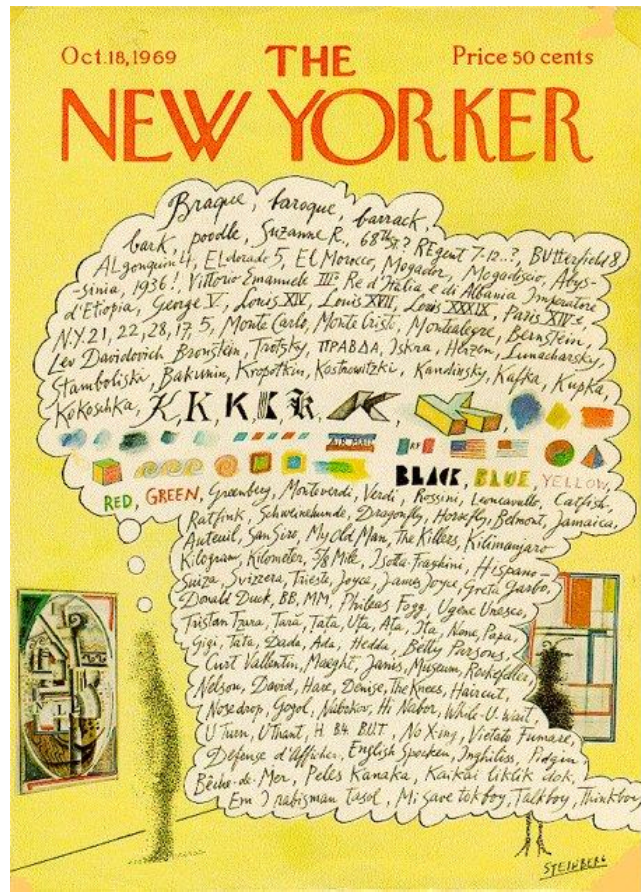 Oct.18,1969
THE
Price 50 cents
NEW YORKER
Braque, baroque, barrack,
bark, poodle, Suzanne R., 68th St.? REgent 7-12..?, BUtterfield 8
ALgonquin 4, ELdorado 5, El Morocco, Mogador, Mogadiscio, Abys-
-sinia, 1936!, Vittorio Emanuele III: Re d'Italia e di Albania Imperatore
d'Etiopia, George V, Louis XIV, Louis XVII, Louis XXXIX, Paris XIVe
N.Y. 21, 22, 28, 17, 5, Monte Carlo, Monte Cristo, Montealegre, Bernstein,
Lev Davidovich Bronstein, Trotzky, ПРАВДА, Iskra, Herzen, Lunacharsky,
Stamboliski, Bakunin, Kropotkin, Kostrowitzki, Kandinsky, Kafka, Kupka,
Kokoschka, K, K, K, K, K, K, K,
AIR MAIL RF
BLACK, BLUE, YELLOW,
RED, GREEN, Greenberg, Monteverdi, Verdi, Rossini, Leoncavallo, Catfish,
Ratfink, Schweinehunde, Dragonfly, Horsefly, Belmont, Jamaica,
Auteuil, San Siro, My Old Man, The Killers, Kilimanjaro
Kilogram, Kilometer, 5/8 Mile, Isotta-Fraschini, Hispano-
Suiza, Svizzera, Trieste, Joyce, James Joyce, Greta Garbo,
Donald Duck, BB, MM, Phileas Fogg, Ugene Unesco,
Tristan Tzara, Tara, Tata, Uta, Ata, Ita, None, Papa,
Gigi, Tata, Dada, Ada, Hedda, Betty Parsons,
Curt Vallentin, Maeght, Janis, Museum, Rockefeller,
Nelson, David, Hare, Denise, The Knees, Haircut,
Nosedrop, Gogol, Nabokov, Hi Nabor, While-U-Wait,
U Turn, U Thant, H. B4. BUT. No X-ing, Vietato Fumare,
Défense d'Afficher, English Spoken, Inghiliss, Pidgin,
Bêche-de-Mer, Peles Kanaka, Kaikai liklik dok,
Em I rabisman tasol, Mi save tokboy, Talkboy, Thinkboy
STEINBERG